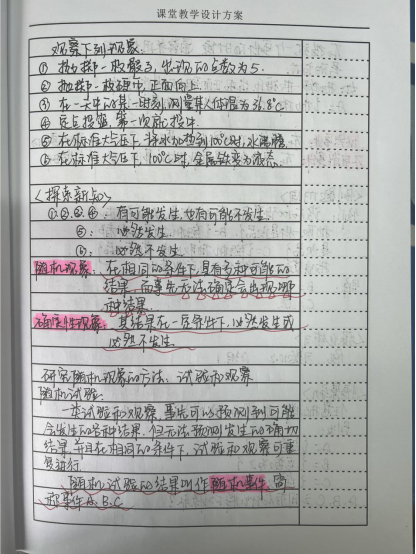 课堂教学设计方案
观察下列现象
① 抛掷一枚骰子，出现的点数为5.
② 抛掷一枚硬币，正面向上.
③ 在一天中的某一时刻，测量某人体温为36.8℃
④ 定点投篮，第一次就投中.
⑤ 在标准大气压下，将水加热到100℃时，水沸腾.
⑥ 在标准大气压下，100℃时，金属铁变为液态.
<探索新知>
①、②、③、④：有可能发生，也有可能不发生.
⑤：必然发生.
⑥：必然不发生.
随机现象：在相同的条件下，具有多种可能的
结果，而事先无法确定会出现哪
种结果.
确定性现象：其结果在一定条件下，必然发生或
必然不发生.
研究随机现象的方法：试验和观察
随机试验：
一次试验和观察，事先可以预测到可能
会发生的各种结果，但无法预测发生的确切
结果，并且在相同的条件下，试验和观察可重
复进行.
随机试验的结果叫作随机事件，简
称事件A、B、C